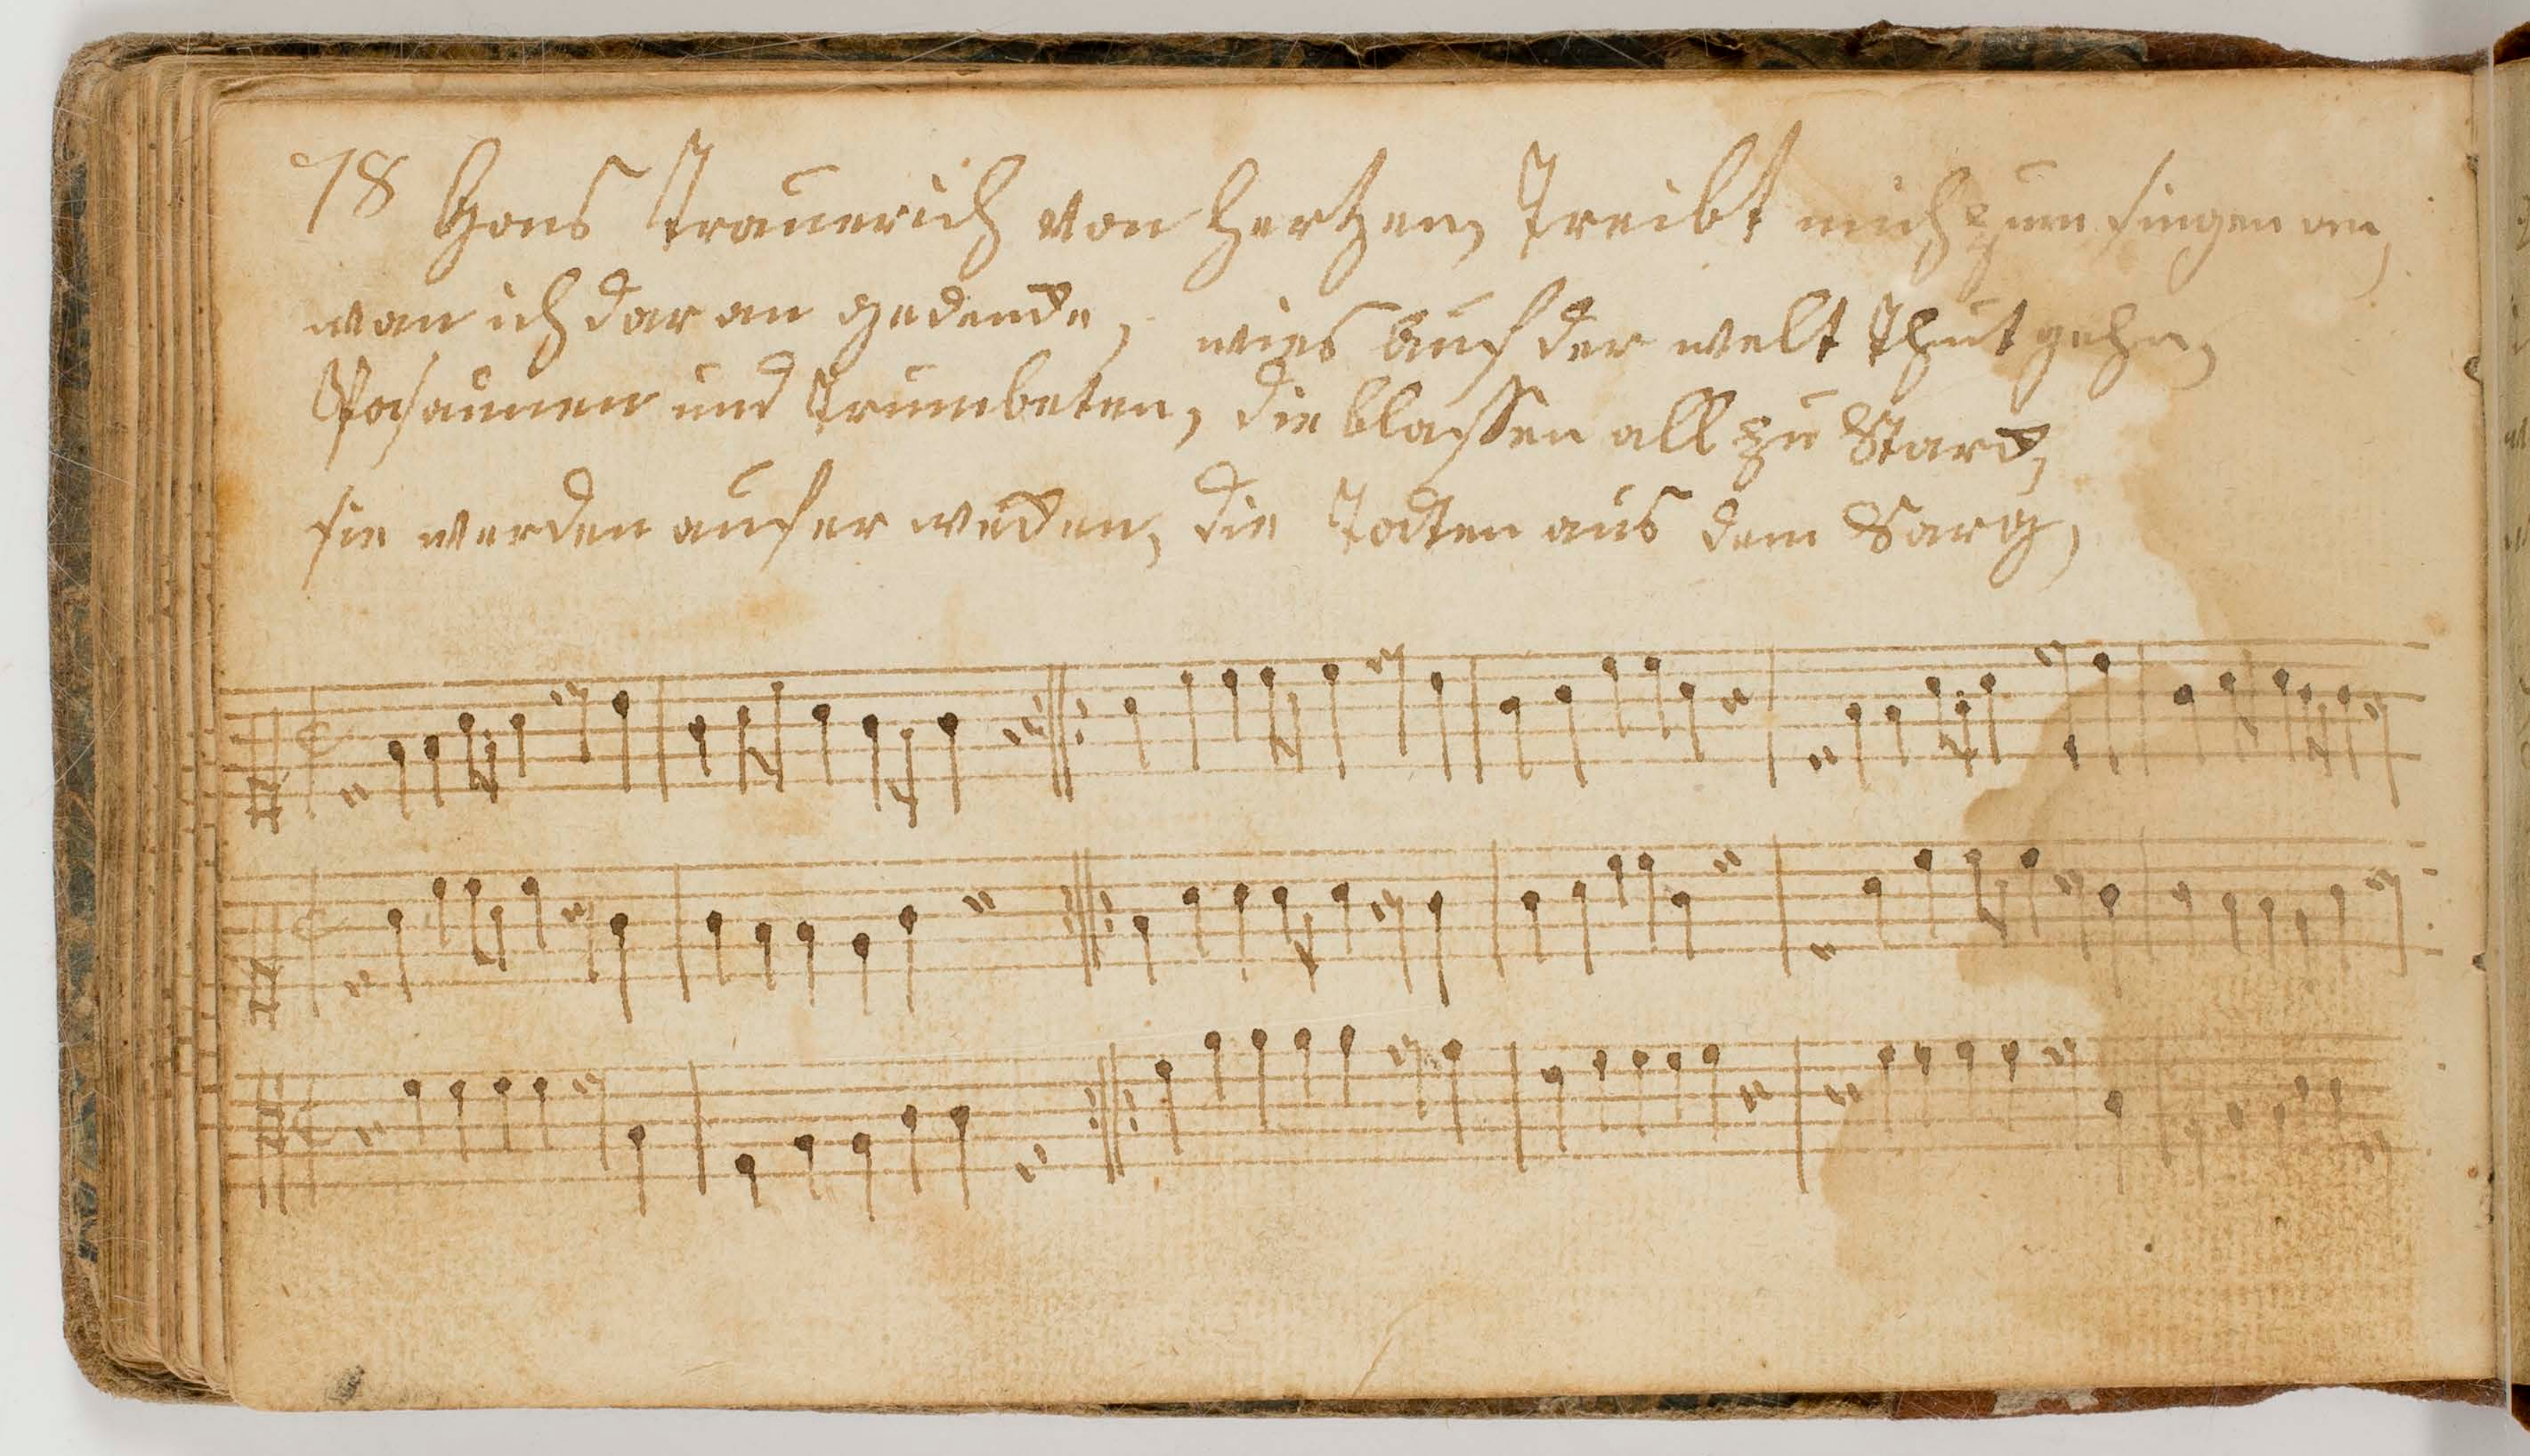 78 Gans Trauerich von Hertzen, Treibt mich zum singen an,
wan ich dar an gedencke, wies auf der welt Thut gehn,
Posaunen und Trumbeten, die blassen all zu Starck,
sie werden aufer wecken, die Todten aus dem Sarg,